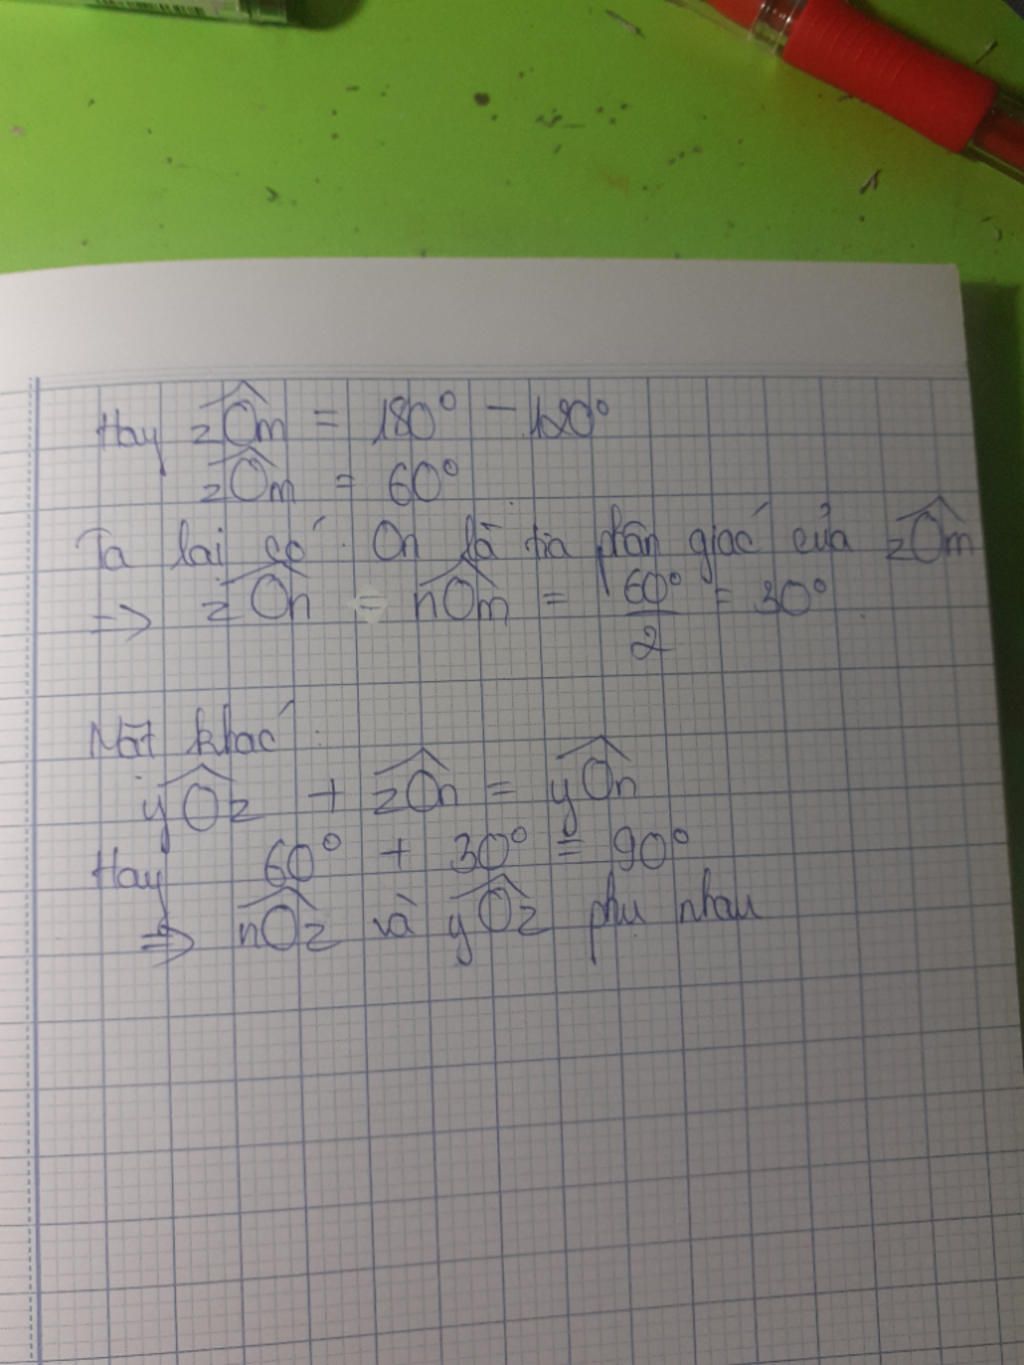 Hay zÔm = 180° - 120°
zÔm = 60°
Ta lại có: On là tia phân giác của zÔm
=> zÔn = nÔm = 60°/2 = 30°
Mặt khác:
yÔz + zÔn = yÔn
Hay 60° + 30° = 90°
=> nÔz và yÔz phụ nhau